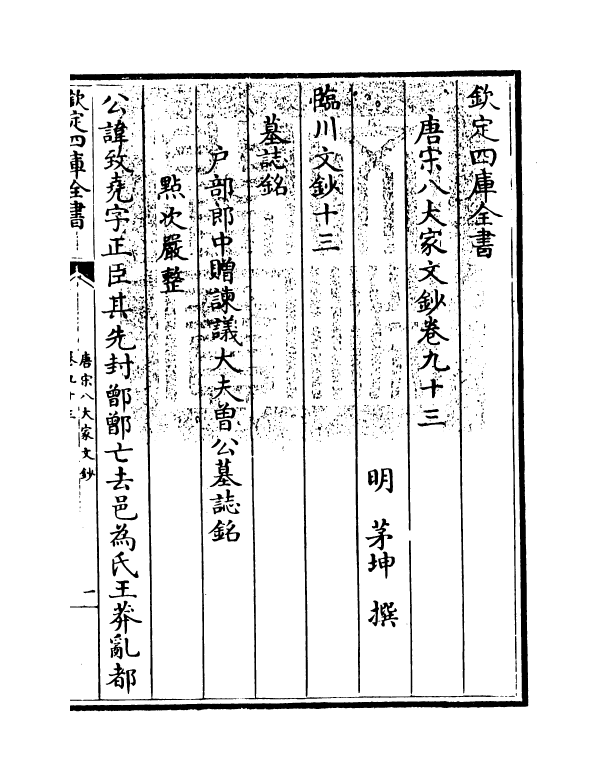 欽定四庫全書
唐宋八大家文鈔卷九十三
明 茅坤 撰
臨川文鈔十三
墓誌銘
户部郎中贈諫議大夫曾公墓誌銘
點次嚴整
公諱致堯字正臣其先封鄫鄫亡去邑為氏王莽亂都
欽定四庫全書
唐宋八大家文鈔
卷九十三
一